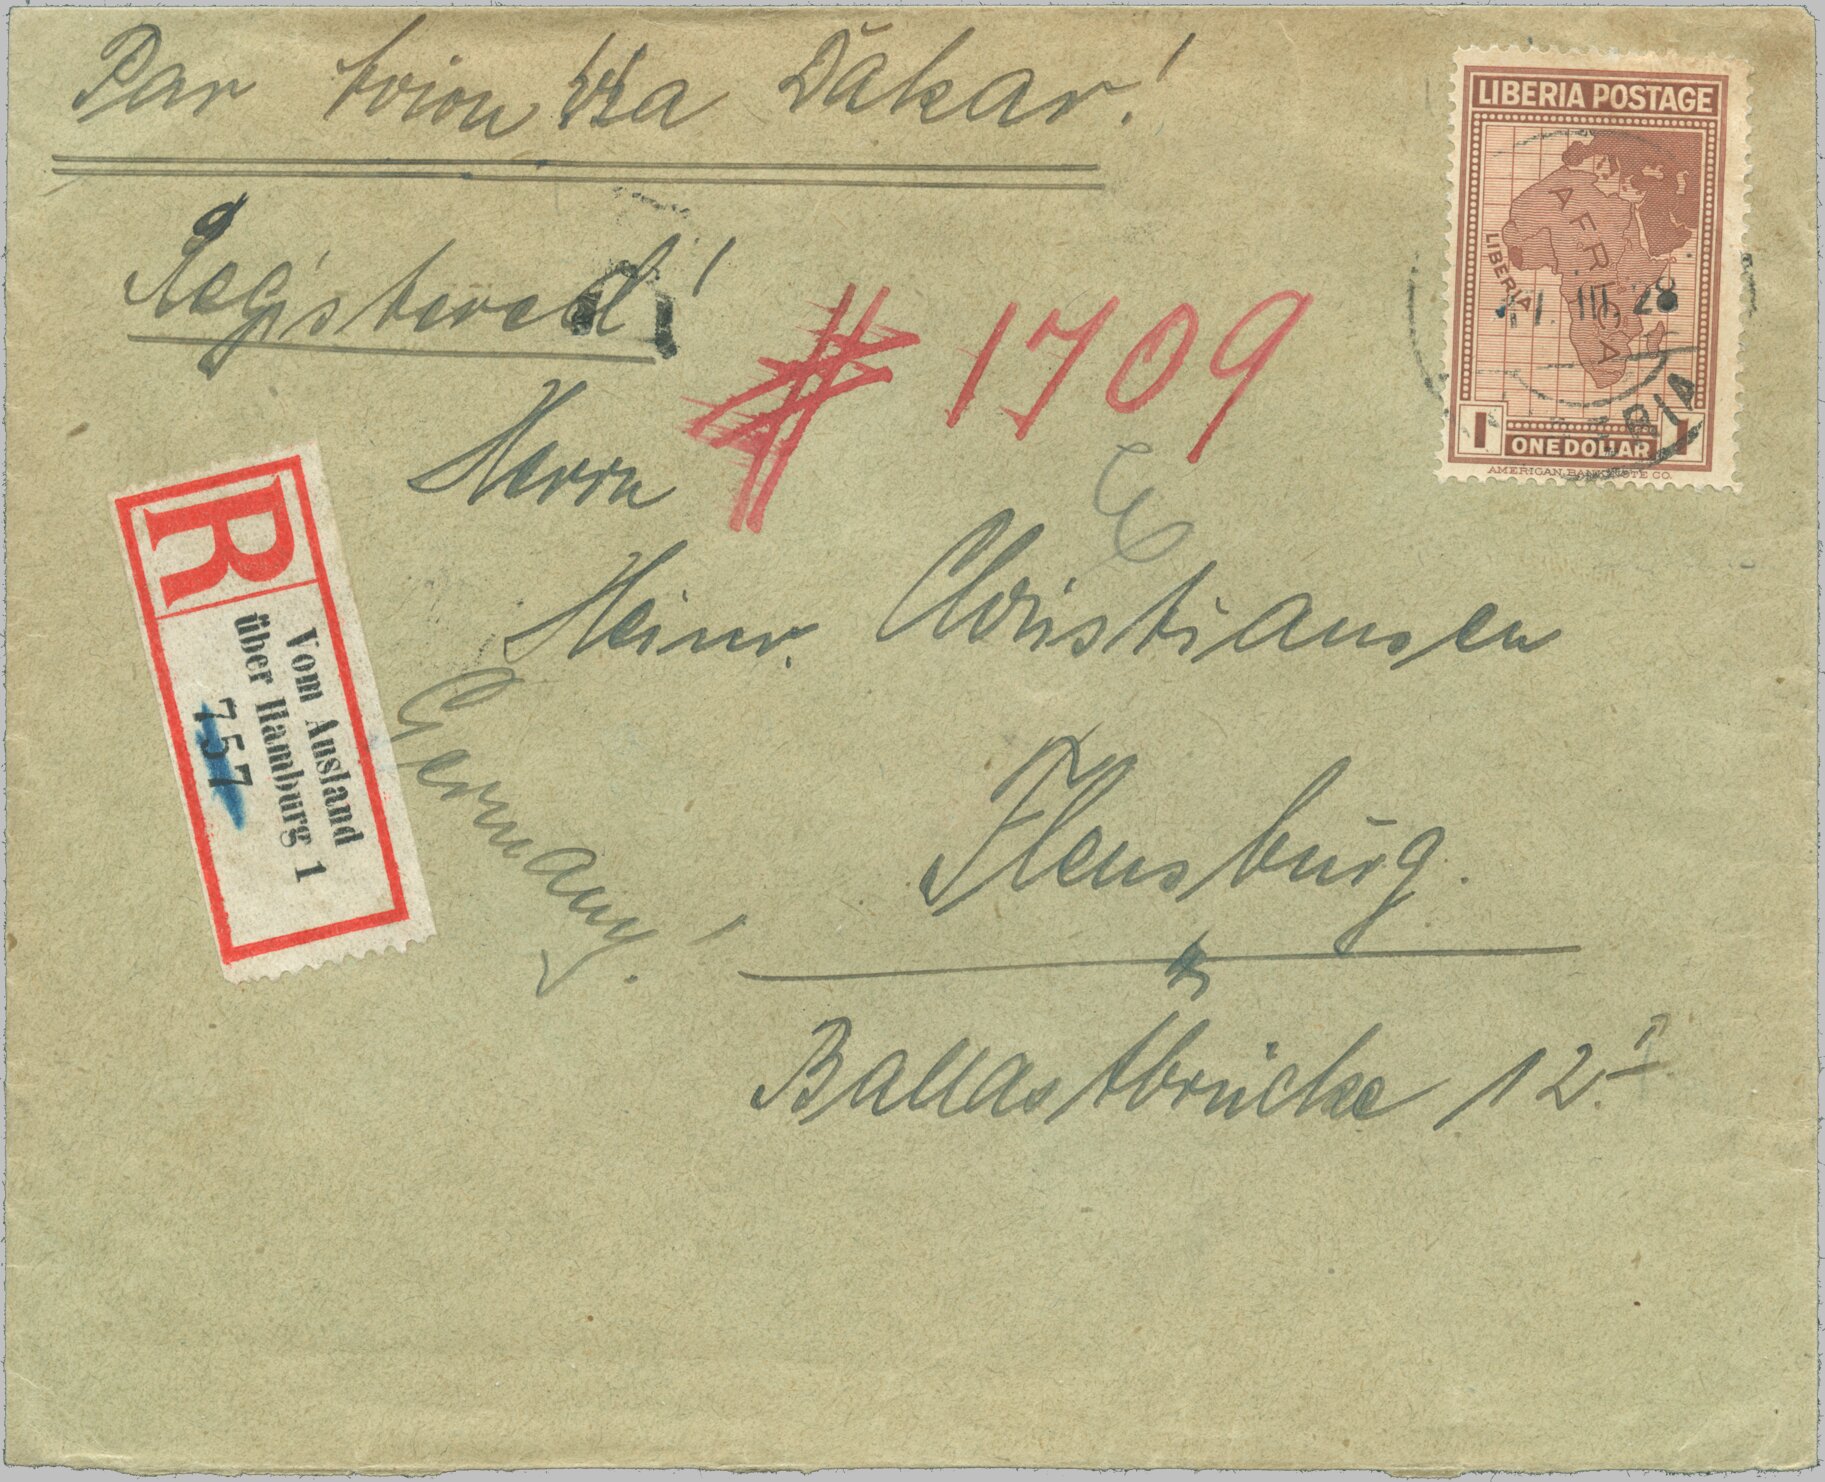 Par Avion via Dakar!
Registered!
# 1709
LIBERIA POSTAGE
AFRICA
LIBERIA
III 28
1
ONE DOLLAR
1
AMERICAN BANK NOTE CO.
Herrn
Heinr. Christiansen
Flensburg.
Ballastbrücke 12
Germany!
R
Vom Ausland
über Hamburg 1
757